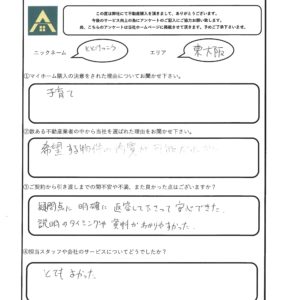 この度は弊社にて不動産購入を頂きまして、ありがとうございます。
今後のサービス向上の為にアンケートのご記入にご協力お願い致します。
尚、こちらのアンケートは当社ホームページに掲載させて頂きます。予めご了承下さいませ。
ニックネーム
エリア 東大阪
①マイホーム購入の決意をされた理由についてお聞かせ下さい。
子育て
②数ある不動産業者の中から当社を選ばれた理由をお聞かせ下さい。
希望する物件の内覧が
③ご契約から引き渡しまでの間不安や不満、また良かった点はございますか?
疑問点に明確に返答して下さって安心できた。
説明のタイミングや資料がわかりやすかった。
④担当スタッフや会社のサービスについてどうでしたか?
とても よかった。